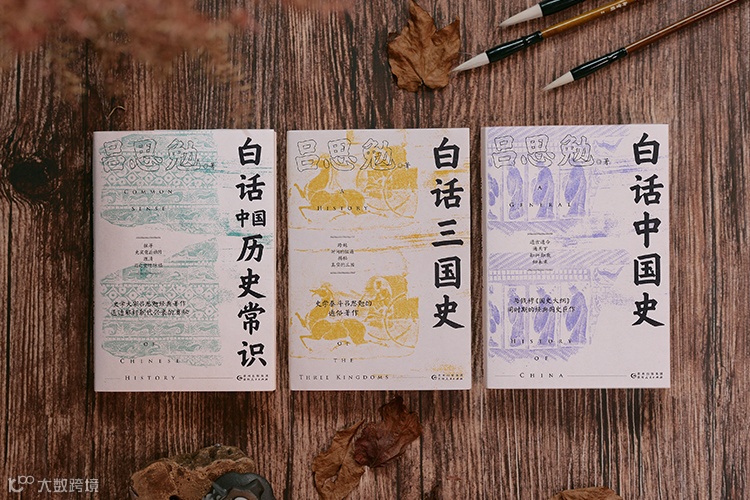 吕思勉 著
白话中国历史常识
COMMON
SENSE
史学大家吕思勉经典著作
OF
CHINESE
HISTORY
吕思勉 著
白话三国史
A
HISTORY
真实的三国
史学泰斗吕思勉的
通俗著作
OF
THE
THREE KINGDOMS
吕思勉 著
白话中国史
A
GENERAL
通古通今
通天下
知兴知衰
知未来
与钱穆《国史大纲》
同时期的经典国史巨作
HISTORY
OF
CHINA
大数跨境